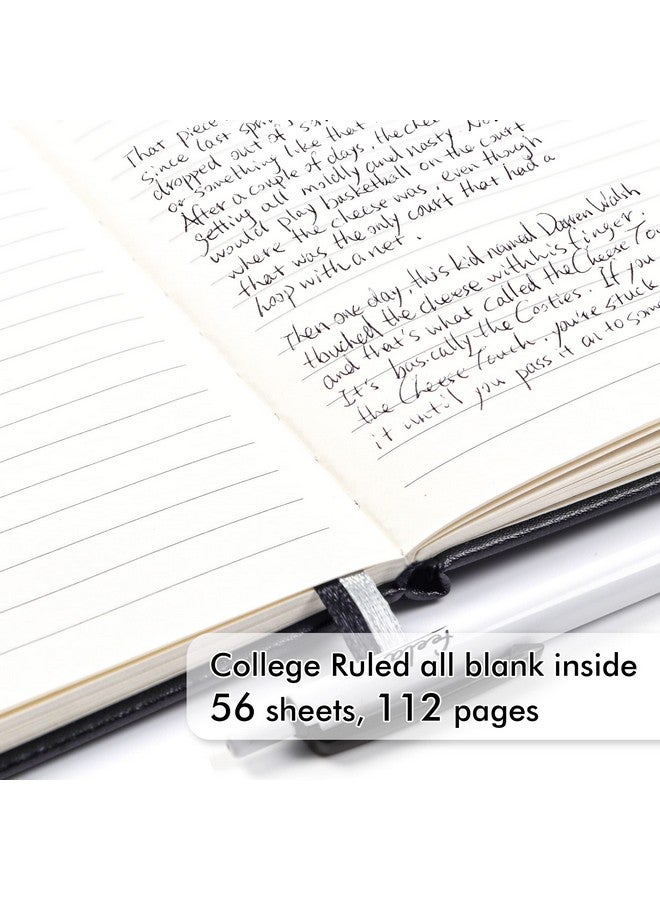 That piece
since last spri
dropped out of s
or something like that
After a couple of days, the chee
getting all moldly and nasty. No
would play basketball on the court
where the cheese was, even though
that was the only court that had a
hoop with a net.
Then one day, this kid named Darren Walsh
touched the cheese with his finger,
and that's what called the Cheese Tou
It's basically the Cooties. If you
the Cheese Touch, you're stuck
it until you pass it on to som
feela
College Ruled all blank inside
56 sheets, 112 pages